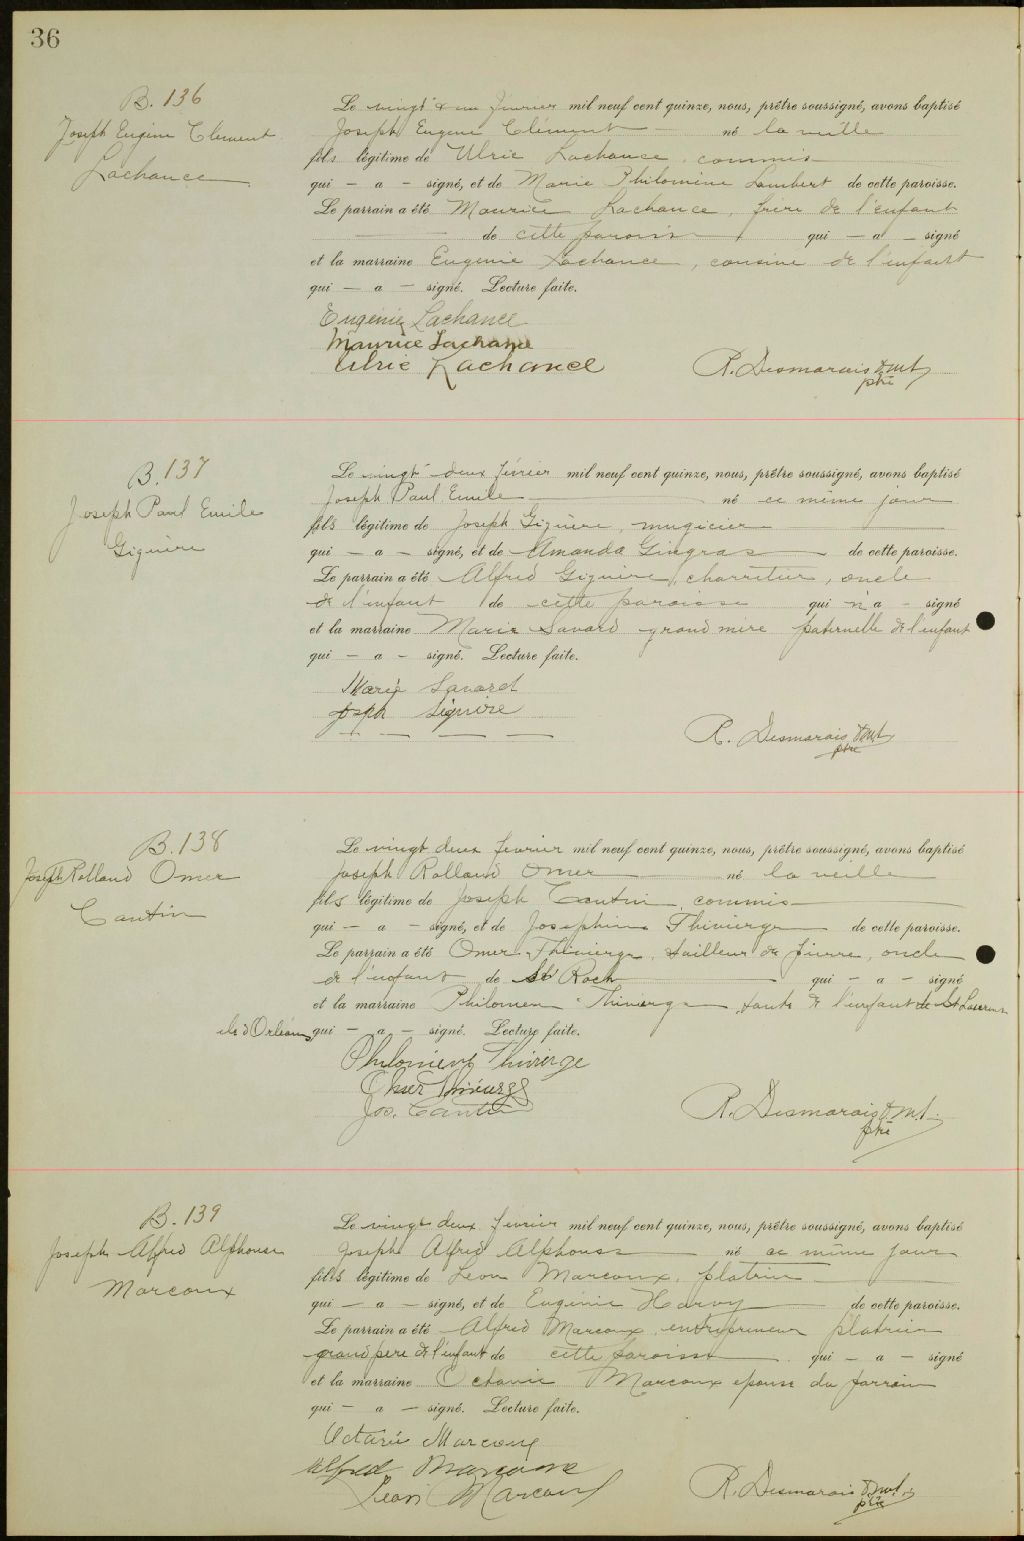 36
B. 136
Joseph Eugène Clement
Lachance
Le vingt & un février mil neuf cent quinze, nous, prêtre soussigné, avons baptisé
Joseph Eugene Clément né la veille
fils légitime de Ulric Lachance, commis
qui — a — signé, et de Marie Philomène Lambert de cette paroisse.
Le parrain a été Maurice Lachance, frère de l'enfant
de cette paroisse qui — a — signé
et la marraine Eugenie Lachance, cousine de l'enfant
qui — a — signé. Lecture faite.
Eugénie Lachance
Maurice Lachance
Ulric Lachance
R. Desmarais
ptre
B. 137
Joseph Paul Emile
Giguère
Le vingt-deux février mil neuf cent quinze, nous, prêtre soussigné, avons baptisé
Joseph Paul Emile né ce même jour
fils légitime de Joseph Giguère, mugicier
qui — a — signé, et de Amanda Gingras de cette paroisse.
Le parrain a été Alfred Giguère, charretier, oncle
de l'enfant de cette paroisse qui n'a - signé
et la marraine Marie Savard grand mère paternelle de l'enfant
qui — a — signé. Lecture faite.
Marie Savard
Joseph Giguère
R. Desmarais
ptre
B. 138
Joseph Rolland Omer
Cantin
Le vingt deux fevrier mil neuf cent quinze, nous, prêtre soussigné, avons baptisé
Joseph Rolland Omer né la veille
fils légitime de Joseph Cantin, commis
qui — a — signé, et de Josephine Thivierge de cette paroisse.
Le parrain a été Omer Thivierge, tailleur de pierre, oncle
de l'enfant de St Roch qui — a — signé
et la marraine Philomen Thivierge tante de l'enfant de St Laurent
ile d'Orléans, qui — a — signé. Lecture faite.
Philomène Thivierge
Omer Thivierge
Jos. Cantin
R. Desmarais
ptre
B. 139
Joseph Alfred Alphonse
Marcoux
Le vingt deux fevrier mil neuf cent quinze, nous, prêtre soussigné, avons baptisé
Joseph Alfred Alphonse né ce même jour
fils légitime de Leon Marcoux, platrier
qui — a — signé, et de Eugénie Harvy de cette paroisse.
Le parrain a été Alfred Marcoux, entrepreneur platrier
grand pere de l'enfant de cette paroisse qui — a — signé
et la marraine Octavie Marcoux epouse du parrain
qui — a — signé. Lecture faite.
Octavie Marcoux
Alfred Marcoux
Leon Marcoux
R. Desmarais
ptre